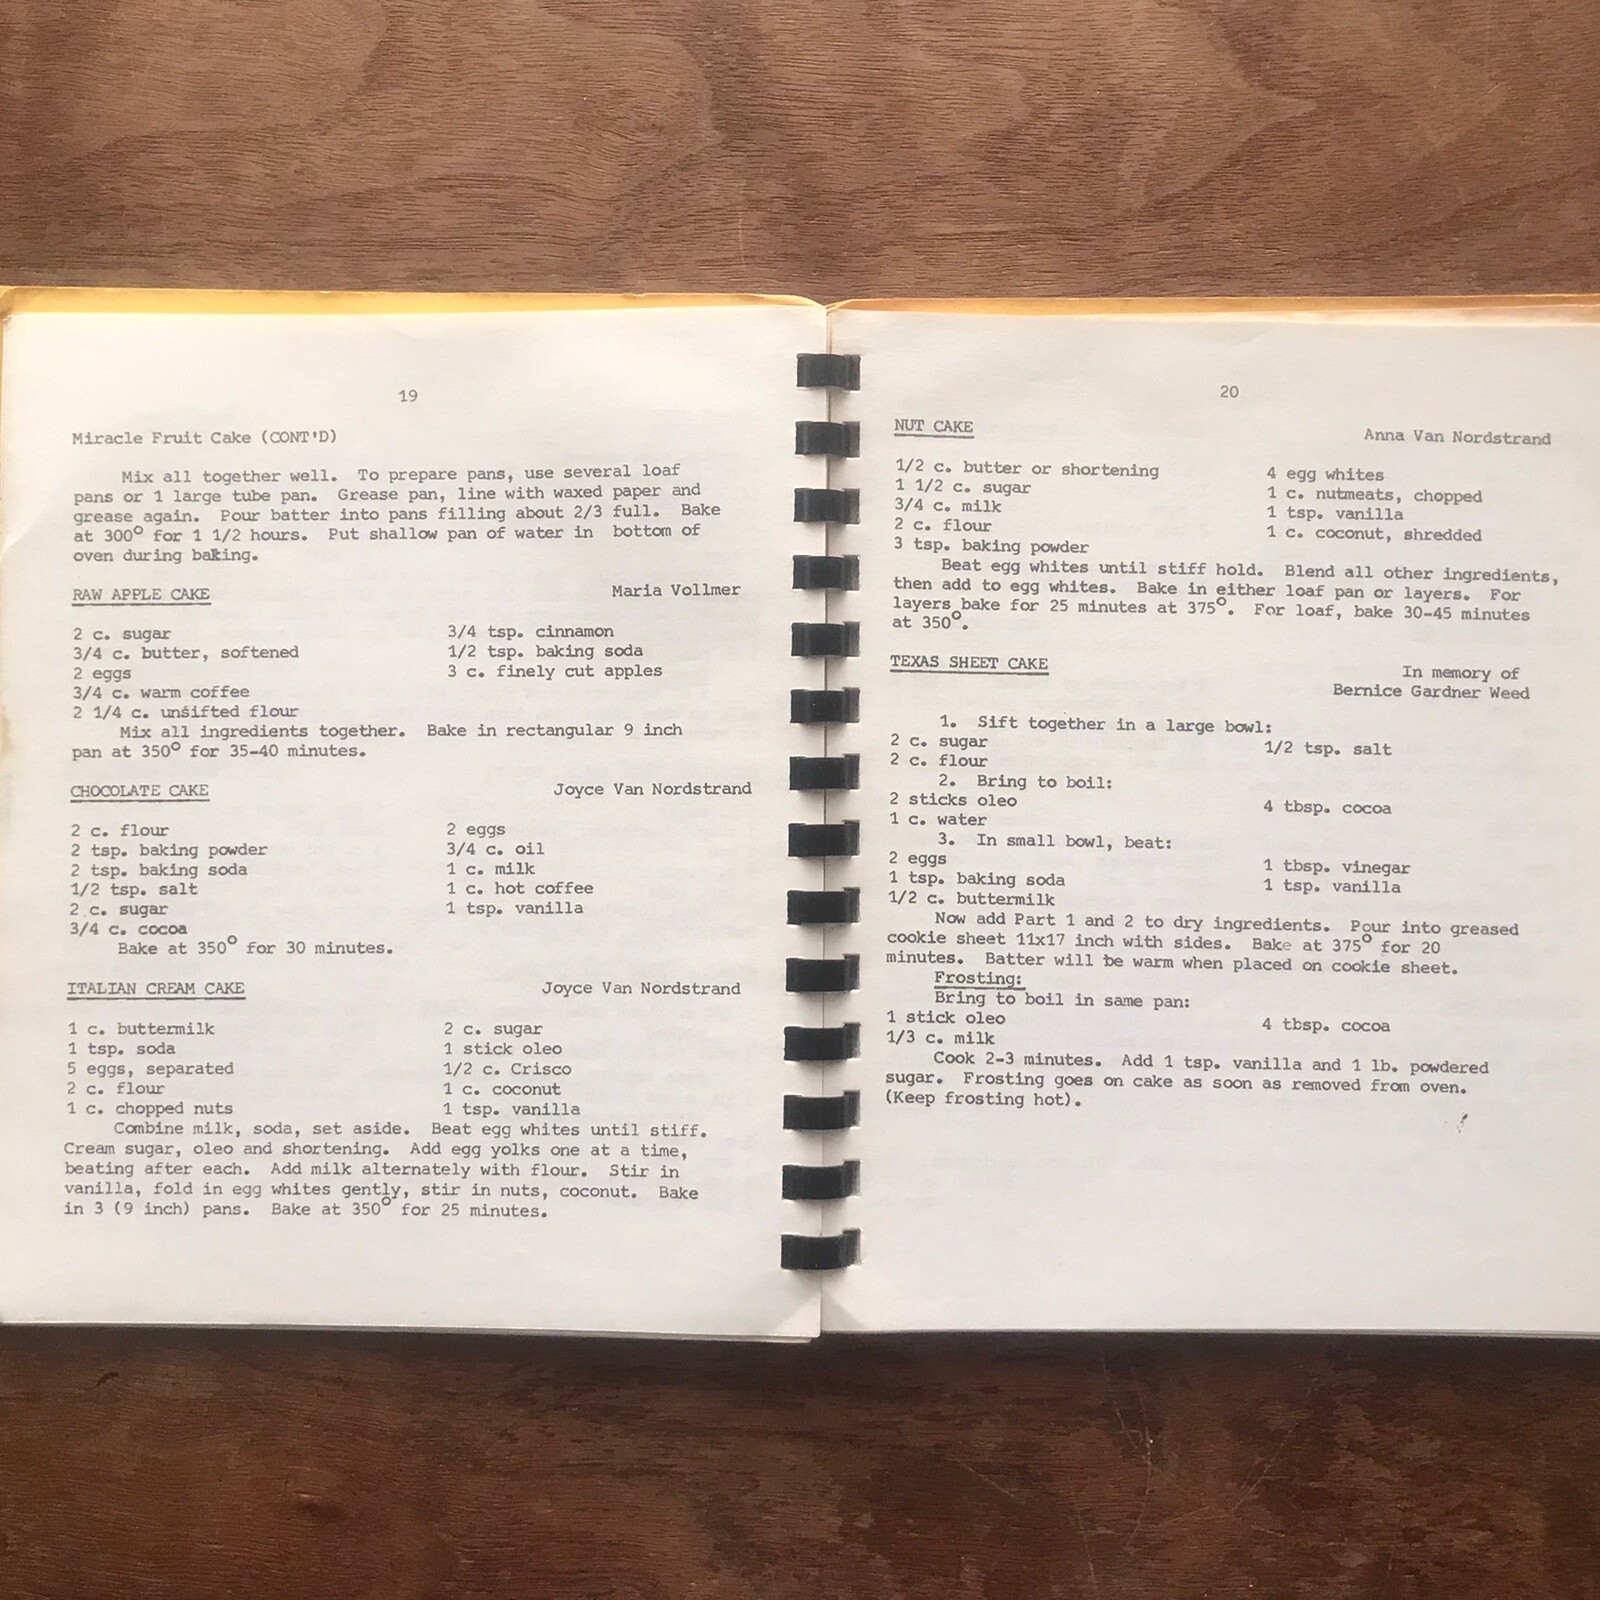 19
Miracle Fruit Cake (CONT'D)
Mix all together well. To prepare pans, use several loaf
pans or 1 large tube pan. Grease pan, line with waxed paper and
grease again. Pour batter into pans filling about 2/3 full. Bake
at 300° for 1 1/2 hours. Put shallow pan of water in bottom of
oven during baking.
RAW APPLE CAKE Maria Vollmer
2 c. sugar 3/4 tsp. cinnamon
3/4 c. butter, softened 1/2 tsp. baking soda
2 eggs 3 c. finely cut apples
3/4 c. warm coffee
2 1/4 c. unsifted flour
Mix all ingredients together. Bake in rectangular 9 inch
pan at 350° for 35-40 minutes.
CHOCOLATE CAKE Joyce Van Nordstrand
2 c. flour 2 eggs
2 tsp. baking powder 3/4 c. oil
2 tsp. baking soda 1 c. milk
1/2 tsp. salt 1 c. hot coffee
2 c. sugar 1 tsp. vanilla
3/4 c. cocoa
Bake at 350° for 30 minutes.
ITALIAN CREAM CAKE Joyce Van Nordstrand
1 c. buttermilk 2 c. sugar
1 tsp. soda 1 stick oleo
5 eggs, separated 1/2 c. Crisco
2 c. flour 1 c. coconut
1 c. chopped nuts 1 tsp. vanilla
Combine milk, soda, set aside. Beat egg whites until stiff.
Cream sugar, oleo and shortening. Add egg yolks one at a time,
beating after each. Add milk alternately with flour. Stir in
vanilla, fold in egg whites gently, stir in nuts, coconut. Bake
in 3 (9 inch) pans. Bake at 350° for 25 minutes.
20
NUT CAKE Anna Van Nordstrand
1/2 c. butter or shortening 4 egg whites
1 1/2 c. sugar 1 c. nutmeats, chopped
3/4 c. milk 1 tsp. vanilla
2 c. flour 1 c. coconut, shredded
3 tsp. baking powder
Beat egg whites until stiff hold. Blend all other ingredients,
then add to egg whites. Bake in either loaf pan or layers. For
layers bake for 25 minutes at 375°. For loaf, bake 30-45 minutes
at 350°.
TEXAS SHEET CAKE In memory of
Bernice Gardner Weed
1. Sift together in a large bowl:
2 c. sugar 1/2 tsp. salt
2 c. flour
2. Bring to boil:
2 sticks oleo 4 tbsp. cocoa
1 c. water
3. In small bowl, beat:
2 eggs 1 tbsp. vinegar
1 tsp. baking soda 1 tsp. vanilla
1/2 c. buttermilk
Now add Part 1 and 2 to dry ingredients. Pour into greased
cookie sheet 11x17 inch with sides. Bake at 375° for 20
minutes. Batter will be warm when placed on cookie sheet.
Frosting:
Bring to boil in same pan:
1 stick oleo 4 tbsp. cocoa
1/3 c. milk
Cook 2-3 minutes. Add 1 tsp. vanilla and 1 lb. powdered
sugar. Frosting goes on cake as soon as removed from oven.
(Keep frosting hot).